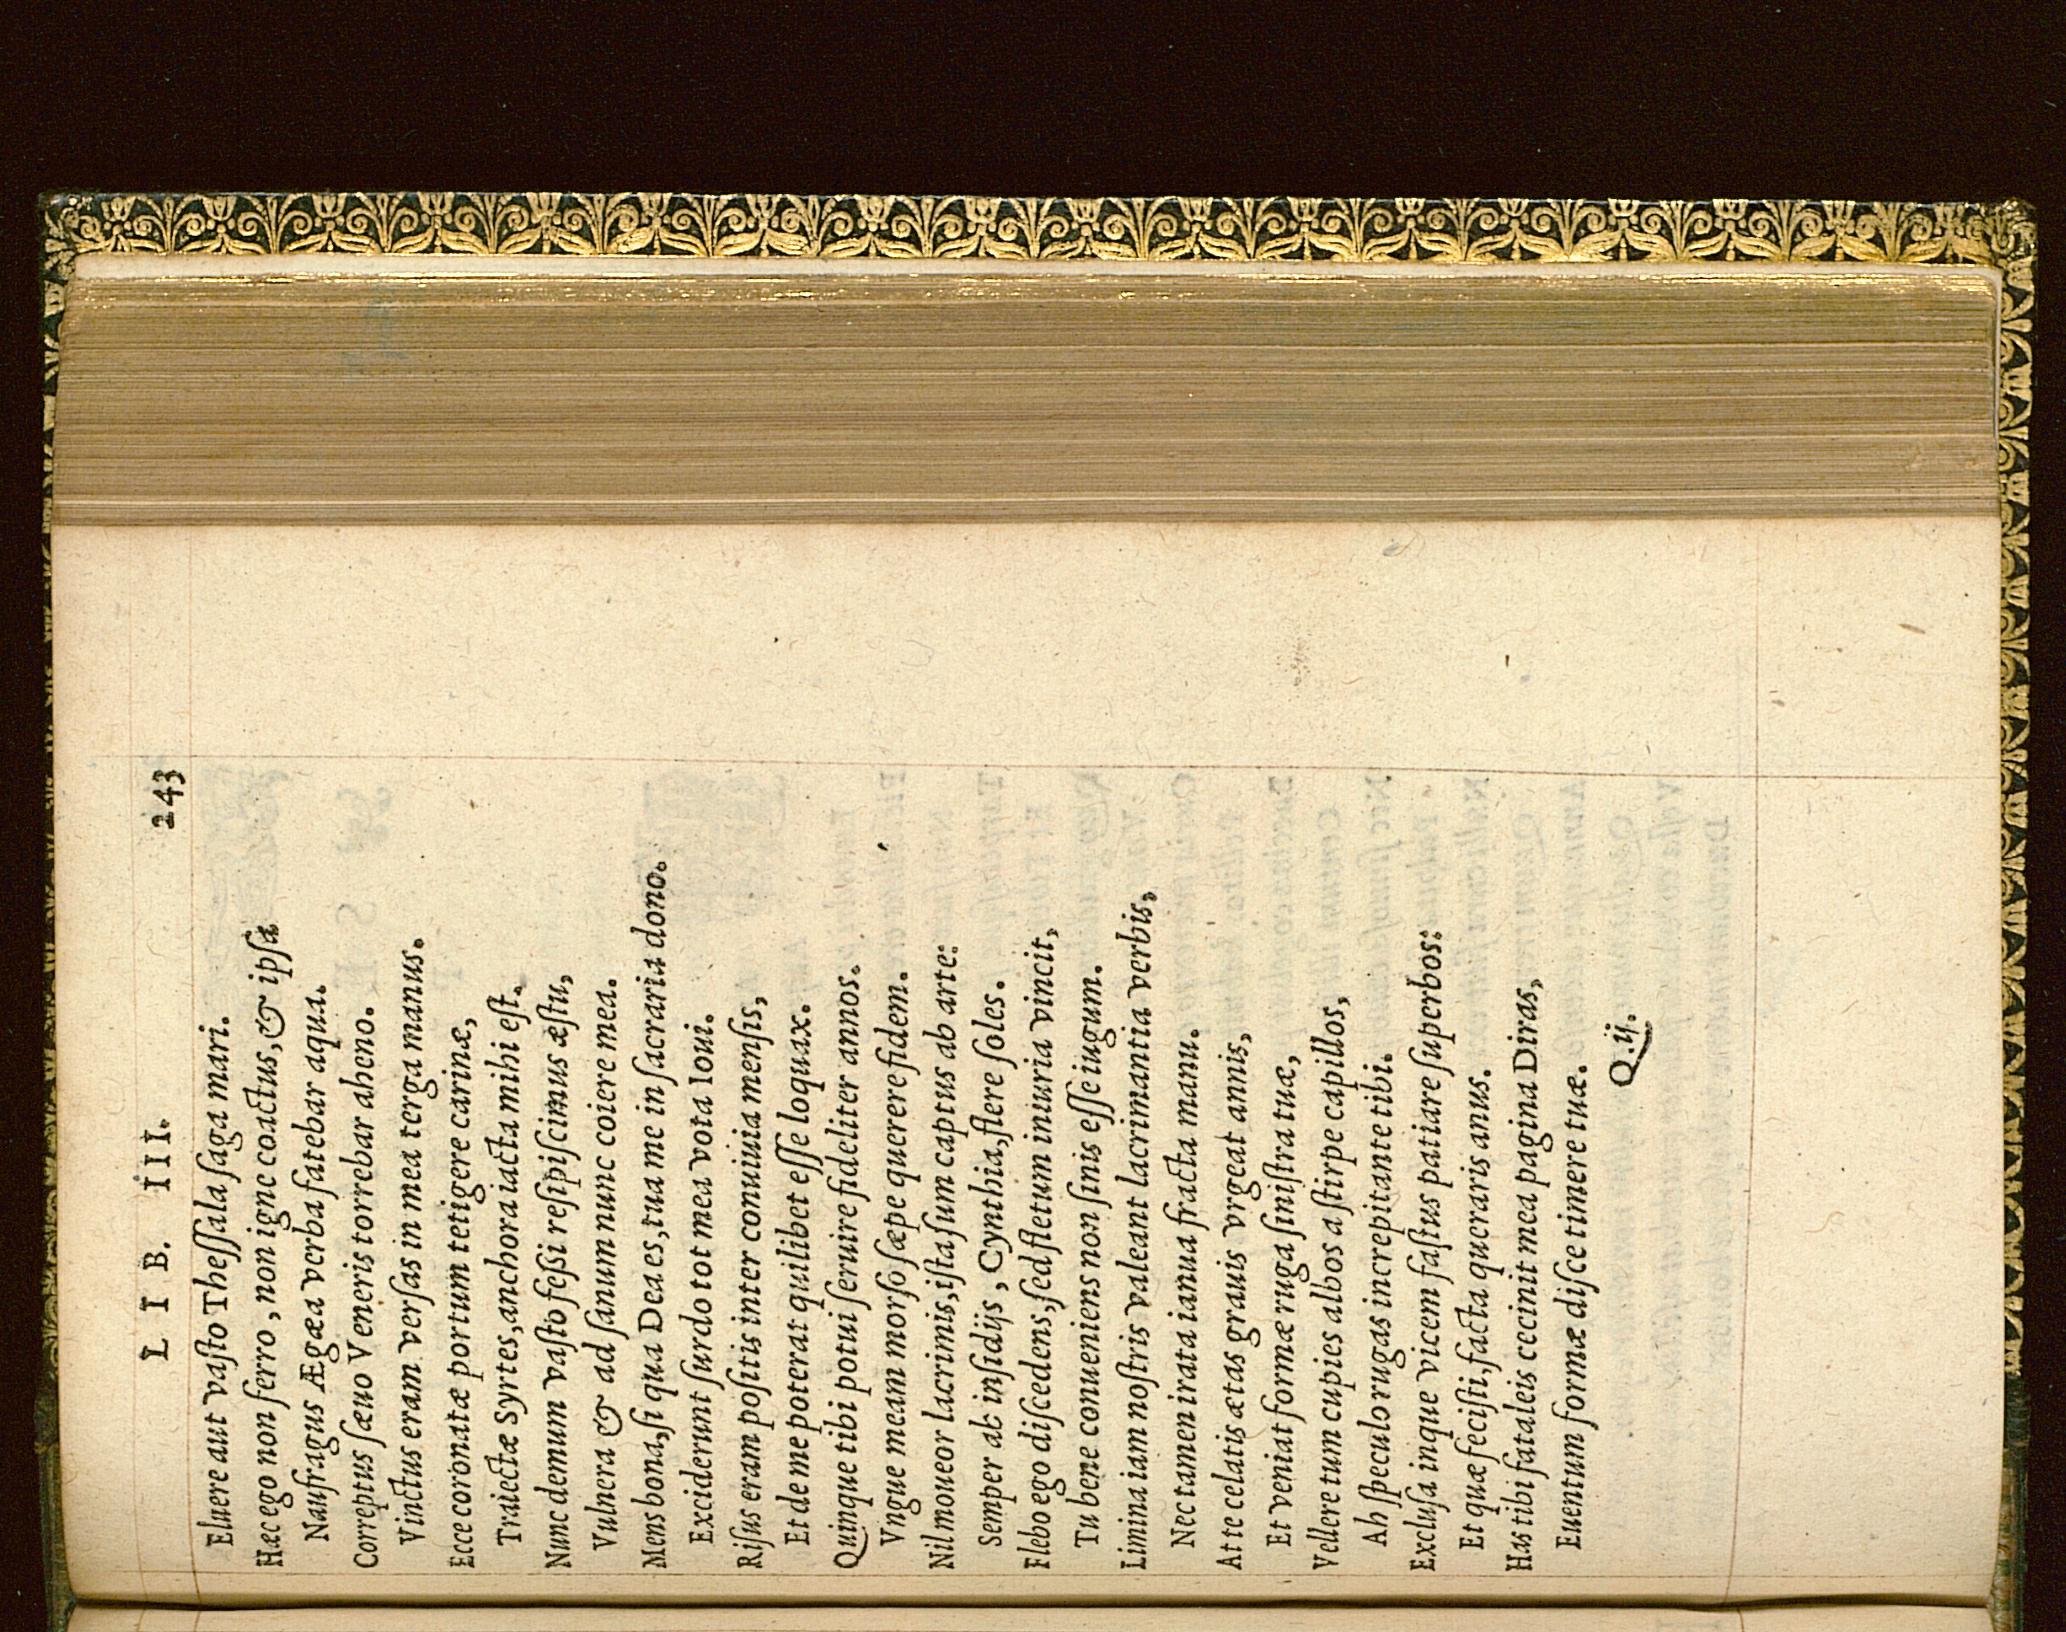 LIB. III. 243
Eluere aut vasto Thessala saga mari.
Hæc ego non ferro, non igne coactus, & ipsa
Naufragus Ægæa verba fatebar aqua.
Correptus sæuo Veneris torrebar aheno.
Vinctus eram versas in mea terga manus.
Ecce coronatæ portum tetigere carinæ,
Traiectæ Syrtes, anchora iacta mihi est.
Nunc demum vasto fessi resipiscimus æstu,
Vulnera & ad sanum nunc coiere mea.
Mens bona, si qua Dea es, tua me in sacraria dono.
Exciderunt surdo tot mea vota Ioui.
Risus eram positis inter conuiuia mensis,
Et de me poterat quilibet esse loquax.
Quinque tibi potui seruire fideliter annos.
Vngue meam morso sæpe querere fidem.
Nil moueor lacrimis, ista sum captus ab arte:
Semper ab insidijs, Cynthia, flere soles.
Flebo ego discedens, sed fletum iniuria vincit,
Tu bene conueniens non sinis esse iugum.
Limina iam nostris valeant lacrimantia verbis,
Nec tamen irata ianua fracta manu.
At te celatis ætas grauis vrgeat annis,
Et veniat formæ ruga sinistra tuæ,
Vellere tum cupies albos a stirpe capillos,
Ah speculo rugas increpitante tibi.
Exclusa inque vicem fastus patiare superbos:
Et quæ fecisti, facta queraris anus.
Has tibi fataleis cecinit mea pagina Diras,
Euentum formæ disce timere tuæ.
Q.ij.